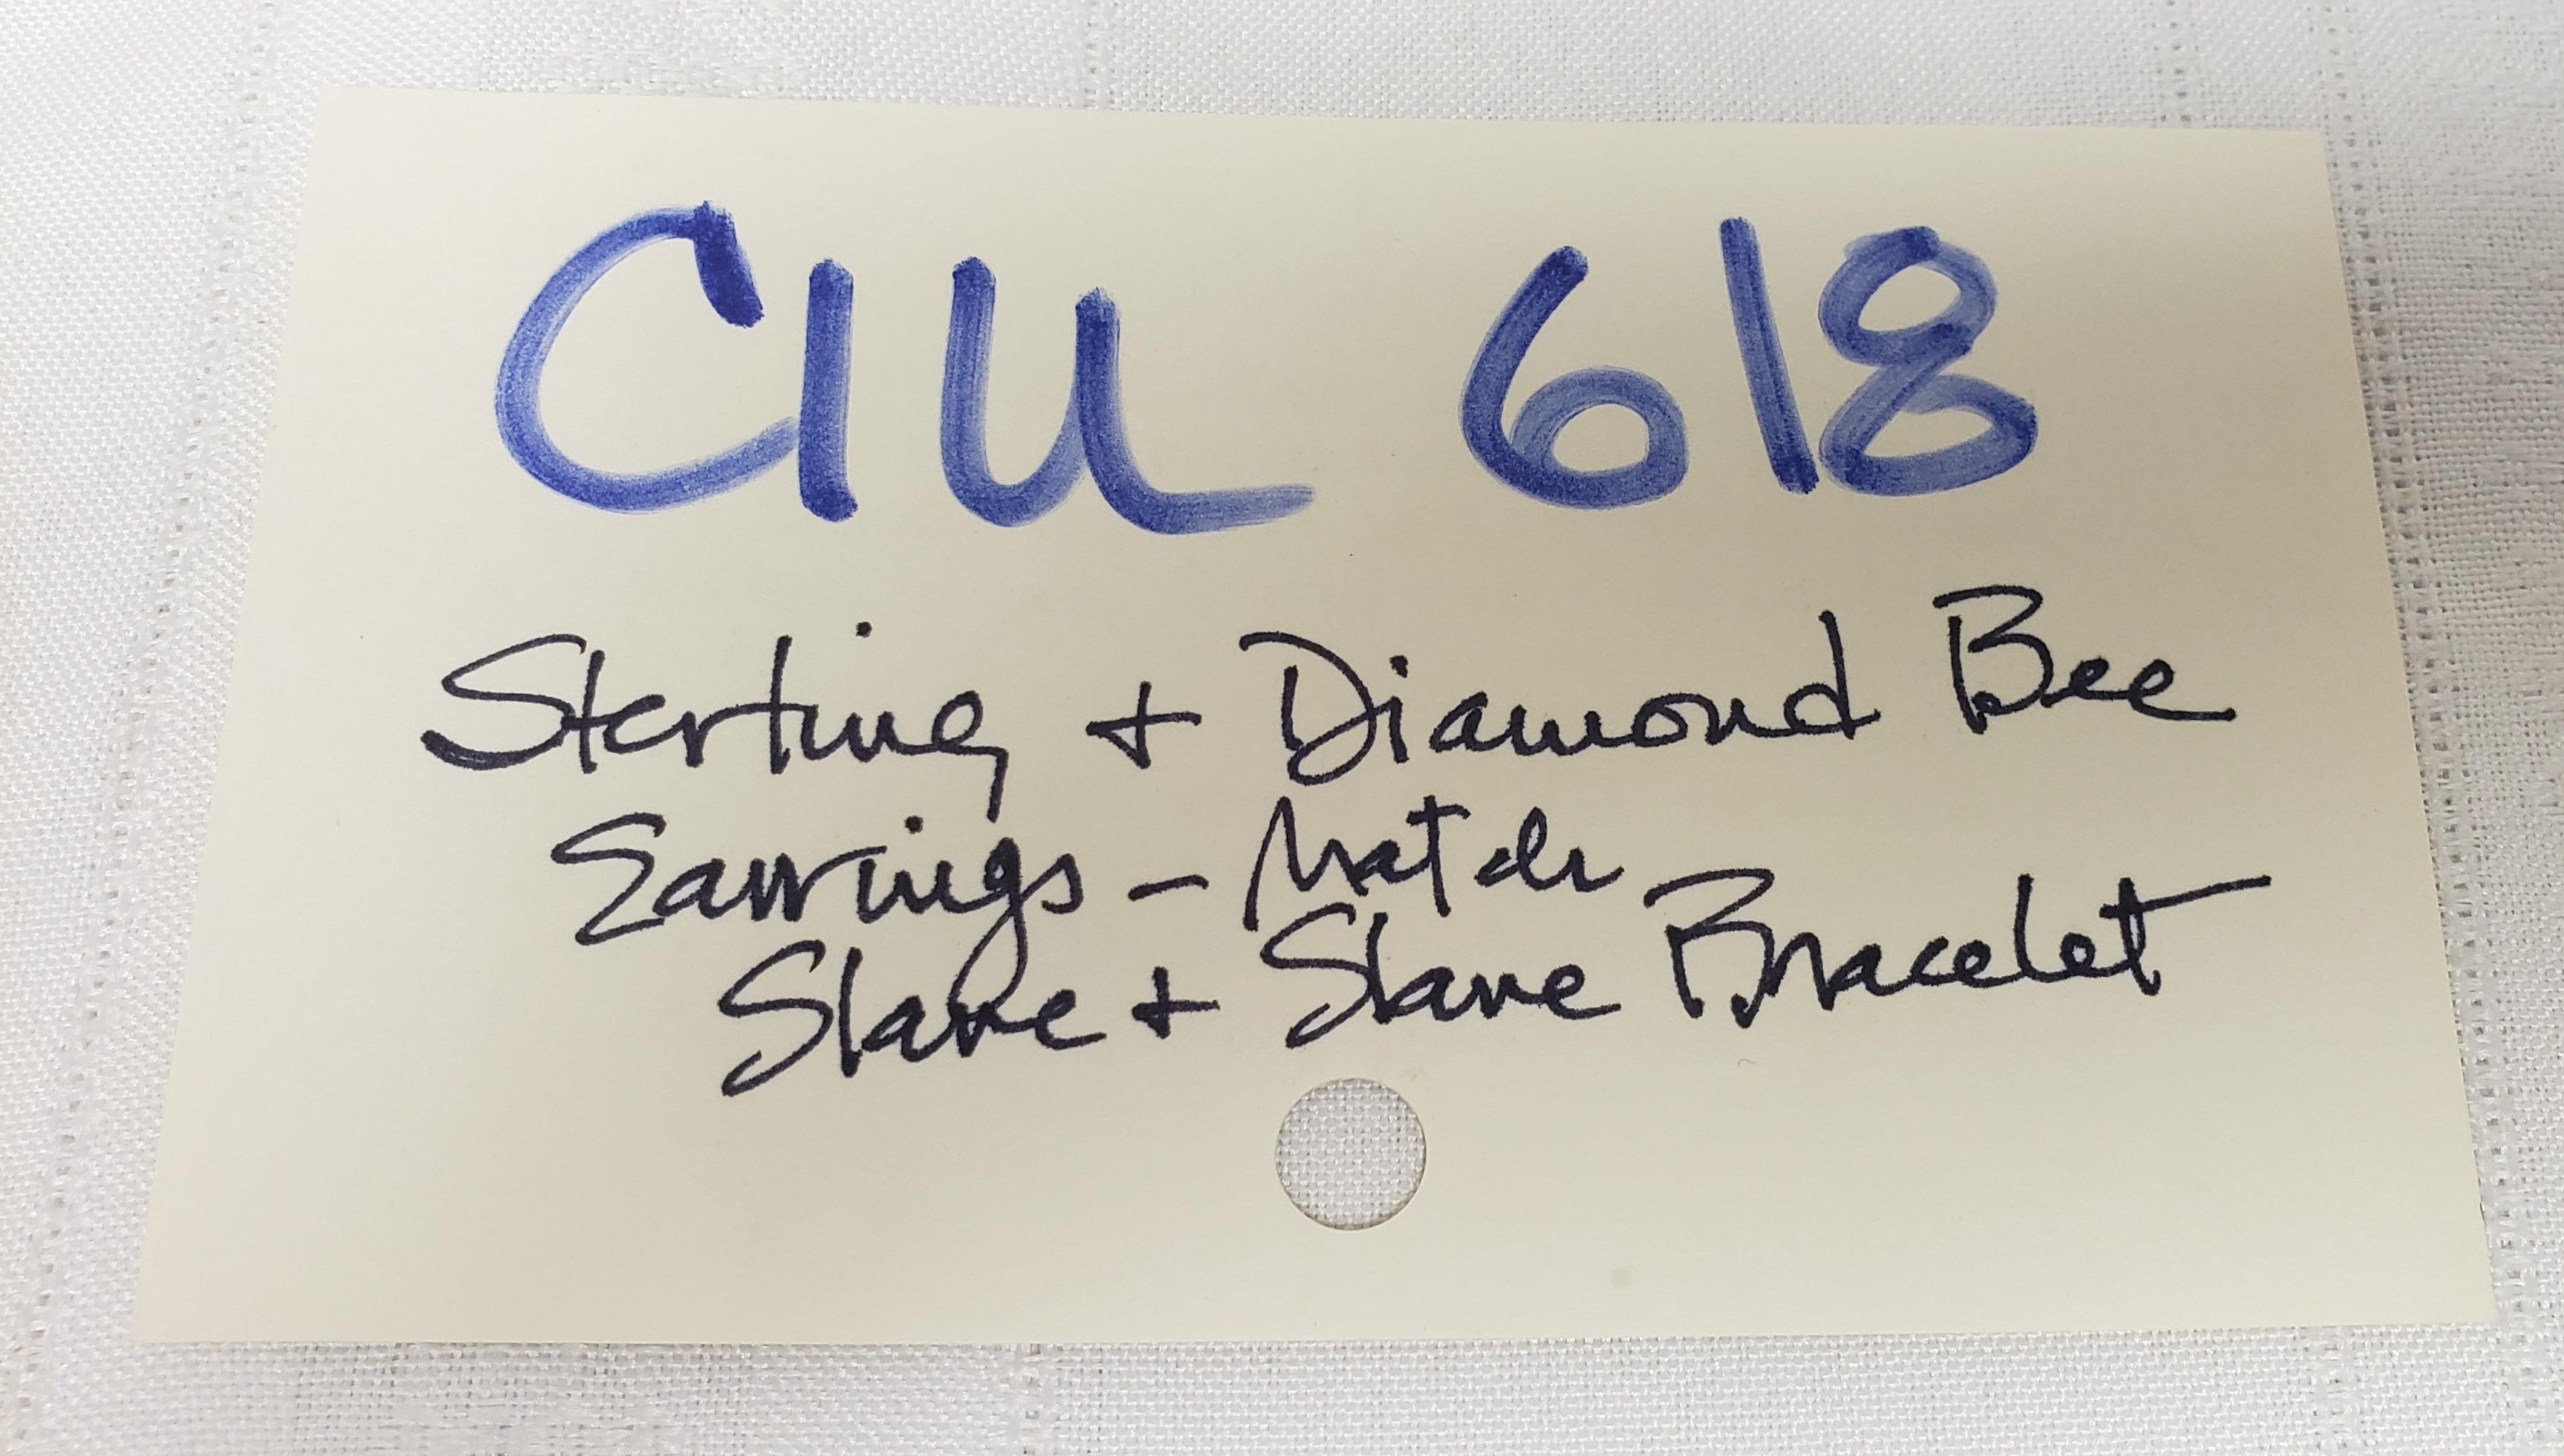 CIU 618
Sterling + Diamond Bee
Earrings - Match
Slave + Slave Bracelet